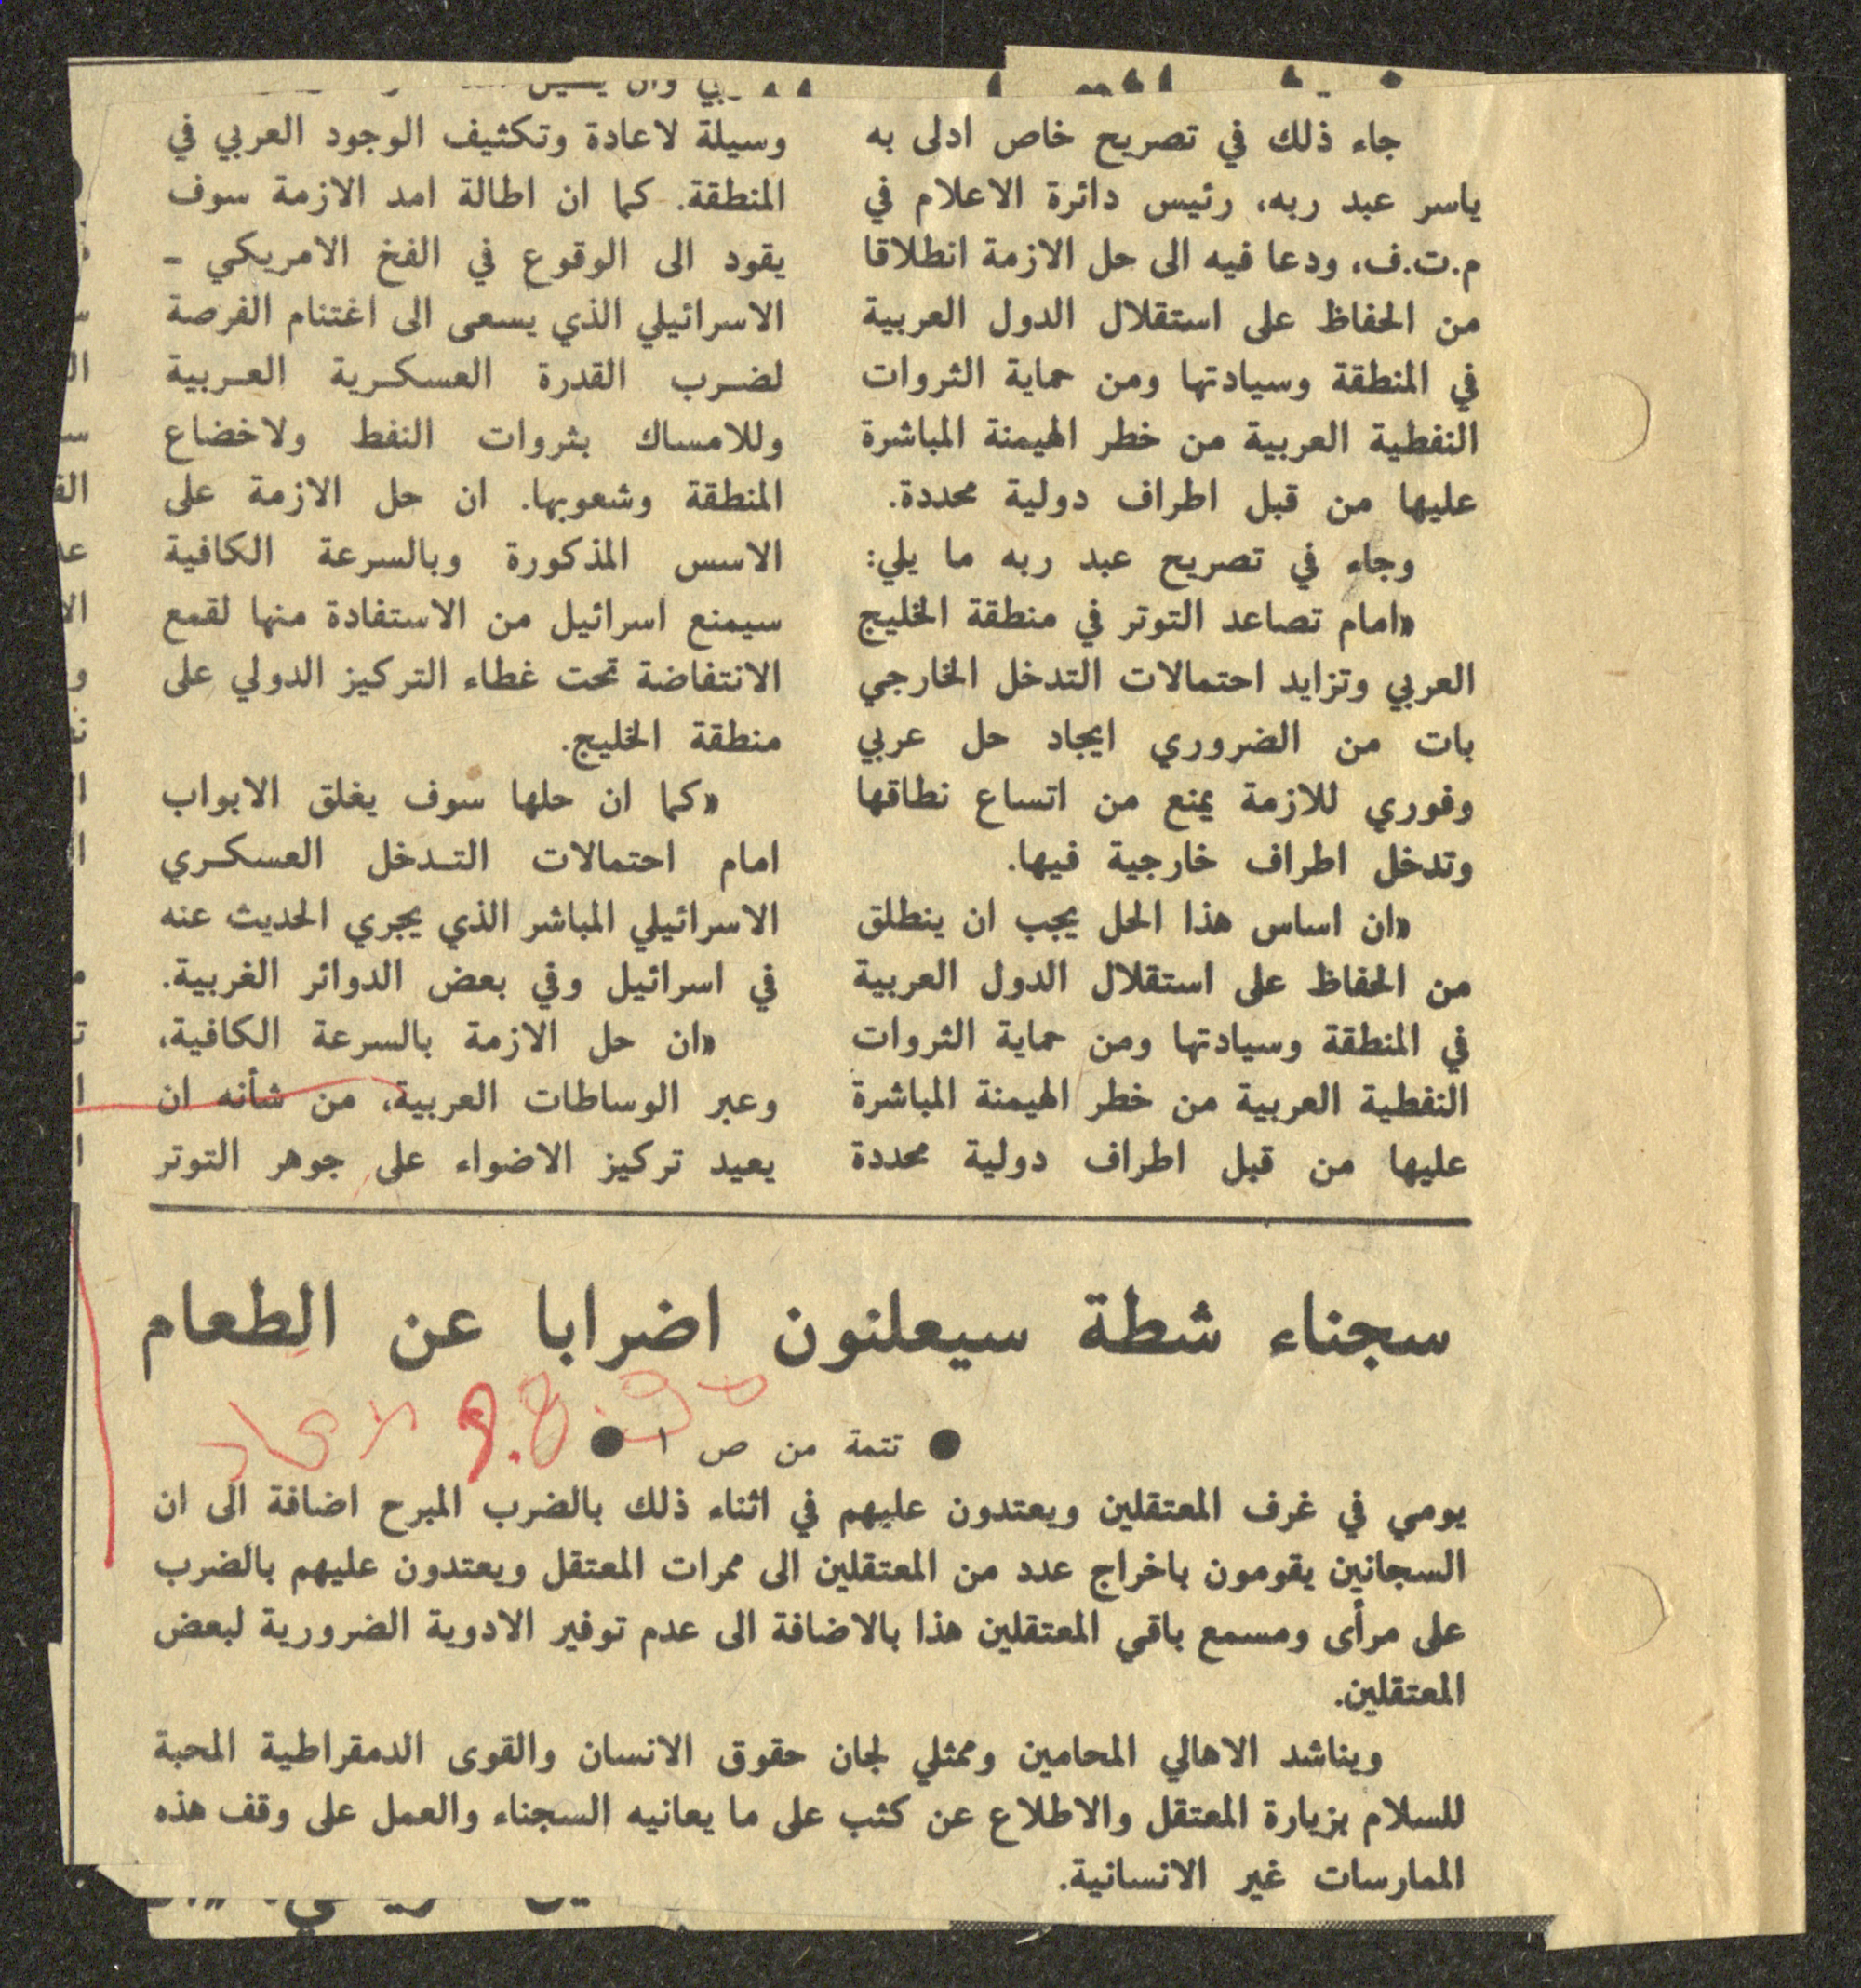 جاء ذلك في تصريح خاص ادلى به
ياسر عبد ربه، رئيس دائرة الاعلام في
م.ت.ف، ودعا فيه الى حل الازمة انطلاقا
من الحفاظ على استقلال الدول العربية
في المنطقة وسيادتها ومن حماية الثروات
النفطية العربية من خطر الهيمنة المباشرة
عليها من قبل اطراف دولية محددة.
وجاء في تصريح عبد ربه ما يلي:
«امام تصاعد التوتر في منطقة الخليج
العربي وتزايد احتمالات التدخل الخارجي
بات من الضروري ايجاد حل عربي
وفوري للازمة يمنع من اتساع نطاقها
وتدخل اطراف خارجية فيها.
«ان اساس هذا الحل يجب ان ينطلق
من الحفاظ على استقلال الدول العربية
في المنطقة وسيادتها ومن حماية الثروات
النفطية العربية من خطر الهيمنة المباشرة
عليها من قبل اطراف دولية محددة
وسيلة لاعادة وتكثيف الوجود العربي في
المنطقة. كما ان اطالة امد الازمة سوف
يقود الى الوقوع في الفخ الامريكي -
الاسرائيلي الذي يسعى الى اغتنام الفرصة
لضرب القدرة العسكرية العربية
وللامساك بثروات النفط ولاخضاع
المنطقة وشعوبها. ان حل الازمة على
الاسس المذكورة وبالسرعة الكافية
سيمنع اسرائيل من الاستفادة منها لقمع
الانتفاضة تحت غطاء التركيز الدولي على
منطقة الخليج.
«كما ان حلها سوف يغلق الابواب
امام احتمالات التدخل العسكري
الاسرائيلي المباشر الذي يجري الحديث عنه
في اسرائيل وفي بعض الدوائر الغربية.
«ان حل الازمة بالسرعة الكافية،
وعبر الوساطات العربية، من شأنه ان
يعيد تركيز الاضواء على جوهر التوتر
سجناء شطة سيعلنون اضرابا عن الطعام
الاتحاد 9.8.90
● تتمة من ص ١ ●
يومي في غرف المعتقلين ويعتدون عليهم في اثناء ذلك بالضرب المبرح اضافة الى ان
السجانين يقومون باخراج عدد من المعتقلين الى ممرات المعتقل ويعتدون عليهم بالضرب
على مرأى ومسمع باقي المعتقلين هذا بالاضافة الى عدم توفير الادوية الضرورية لبعض
المعتقلين.
ويناشد الاهالي المحامين وممثلي لجان حقوق الانسان والقوى الدمقراطية المحبة
للسلام بزيارة المعتقل والاطلاع عن كثب على ما يعانيه السجناء والعمل على وقف هذه
الممارسات غير الانسانية.